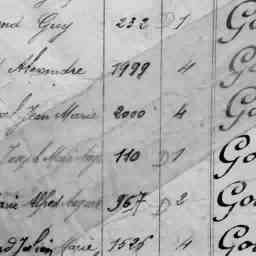 ond Guy 232 D 1 Go
Alexandre 1999 4 Go
Jean Marie 2000 4 Go
Joseph Marie 110 D 1 Go
Marie Alfred August 967 D 2 Go
Julien Marie, 1525 4 Go